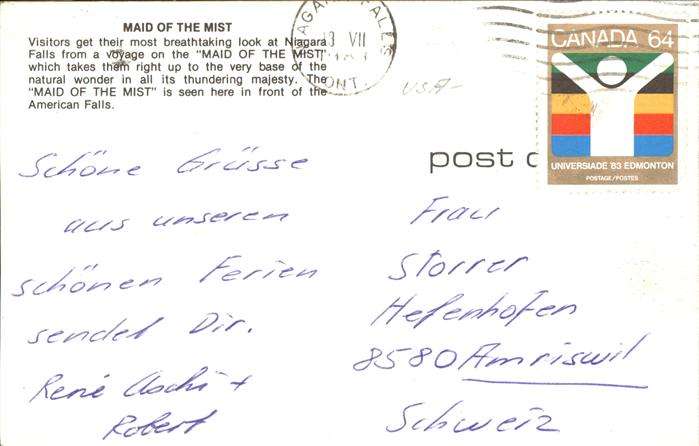 MAID OF THE MIST
Visitors get their most breathtaking look at Niagara
Falls from a voyage on the "MAID OF THE MIST,"
which takes them right up to the very base of the
natural wonder in all its thundering majesty. The
"MAID OF THE MIST" is seen here in front of the
American Falls.
VII
ONT.
USA-
CANADA 64
UNIVERSIADE '83 EDMONTON
POSTAGE/POSTES
post c
Schöne Grüsse
aus unseren
schönen Ferien
sendet Dir.
René +
Robert
Frau
Storrer
Hefenhofen
8580 Amriswil
Schweiz